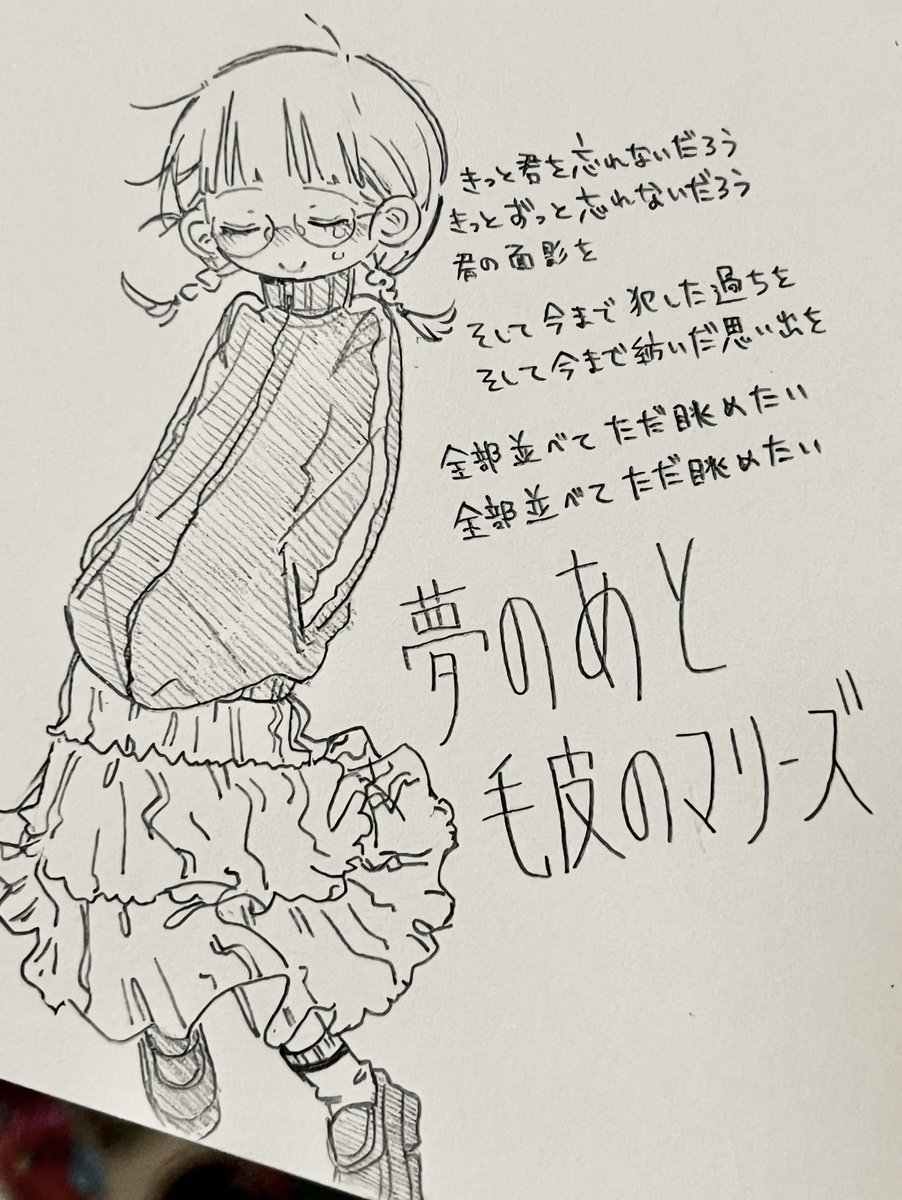 きっと君を忘れないだろう
きっとずっと忘れないだろう
君の面影を
そして今まで犯した過ちを
そして今まで紡いだ思い出を
全部並べてただ眺めたい
全部並べてただ眺めたい
夢のあと
毛皮のマリーズ